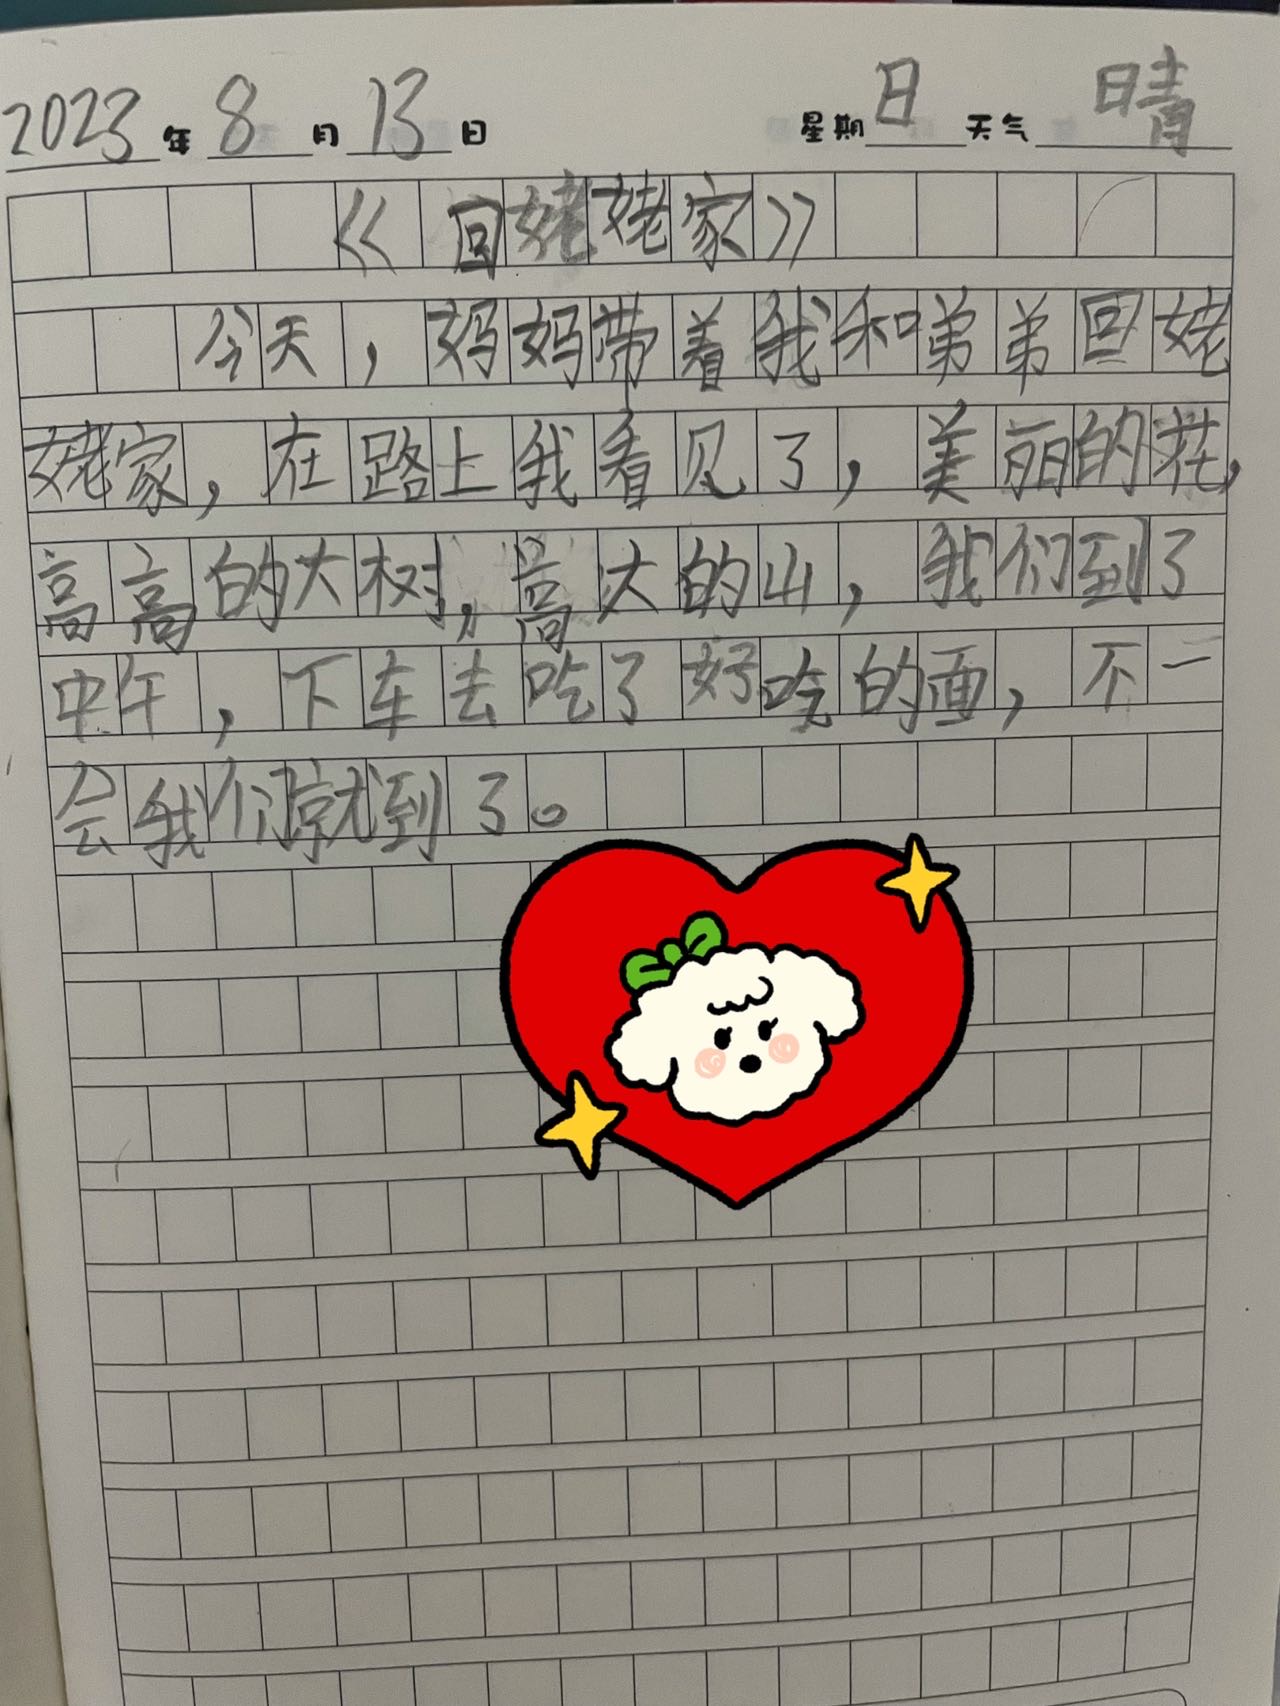 2023年8月13日 星期日 天气 晴
《回姥姥家》
今天，妈妈带着我和弟弟回姥
姥家，在路上我看见了，美丽的花，
高高的大树，高大的山，我们到了
中午，下车去吃了好吃的面，不一
会我们就到了。